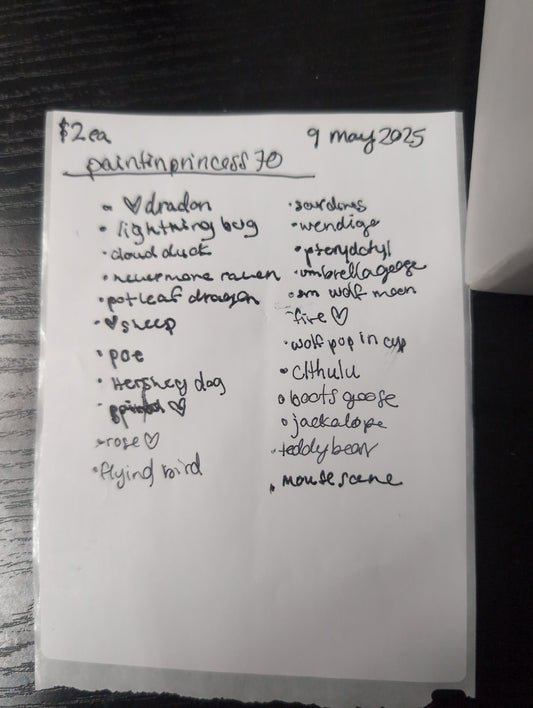 $2 ea
9 may 2025
paintinprincess70
• ♡ dradon
• lightning bug
• cloud duck
• nevermore raven
• pot leaf dragon
• ♡ sheep
• poe
• Hershey dog
• ♡
• rose ♡
• flying bird
• sardines
• wendigo
• pterydctyl
• umbrella goose
• sm wolf moon
fire ♡
• wolf pop in cup
• Clthulu
• boots goose
• jackalope
• teddy bear
• mouse scene